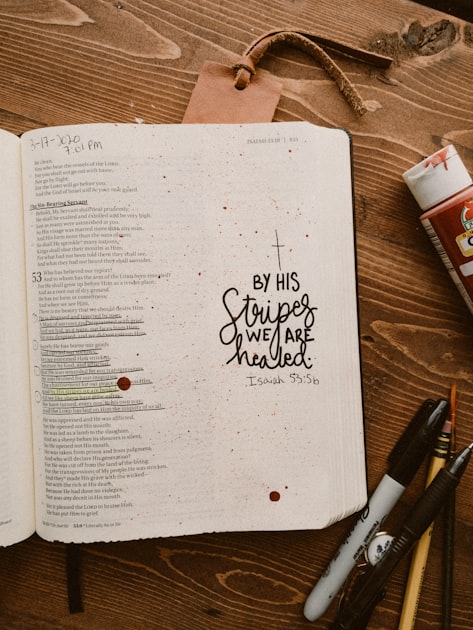 3-17-2020
7:01 PM
Be clean,
You who bear the vessels of the LORD.
For you shall not go out with haste,
Nor go by flight;
For the LORD will go before you,
And the God of Israel will be your rear guard.
The Sin-Bearing Servant
Behold, My Servant shall deal prudently;
He shall be exalted and extolled and be very high.
Just as many were astonished at you,
So His visage was marred more than any man,
And His form more than the sons of men;
So shall He sprinkle many nations.
Kings shall shut their mouths at Him;
For what had not been told them they shall see,
And what they had not heard they shall consider.
53 Who has believed our report?
And to whom has the arm of the LORD been revealed?
For He shall grow up before Him as a tender plant,
And as a root out of dry ground.
He has no form or comeliness;
And when we see Him,
There is no beauty that we should desire Him.
He is despised and rejected by men,
A Man of sorrows and acquainted with grief.
And we hid, as it were, our faces from Him;
He was despised, and we did not esteem Him.
Surely He has borne our griefs
And carried our sorrows;
Yet we esteemed Him stricken,
Smitten by God, and afflicted.
But He was wounded for our transgressions,
He was bruised for our iniquities;
The chastisement for our peace was upon Him,
And by His stripes we are healed.
All we like sheep have gone astray;
We have turned, every one, to his own way;
And the LORD has laid on Him the iniquity of us all.
He was oppressed and He was afflicted,
Yet He opened not His mouth;
He was led as a lamb to the slaughter,
And as a sheep before its shearers is silent,
So He opened not His mouth.
He was taken from prison and from judgment,
And who will declare His generation?
For He was cut off from the land of the living;
For the transgressions of My people He was stricken.
And they* made His grave with the wicked—
But with the rich at His death,
Because He had done no violence,
Nor was any deceit in His mouth.
Yet it pleased the LORD to bruise Him;
He has put Him to grief.
BY HIS
Stripes
WE ARE
healed.
Isaiah 53:5b